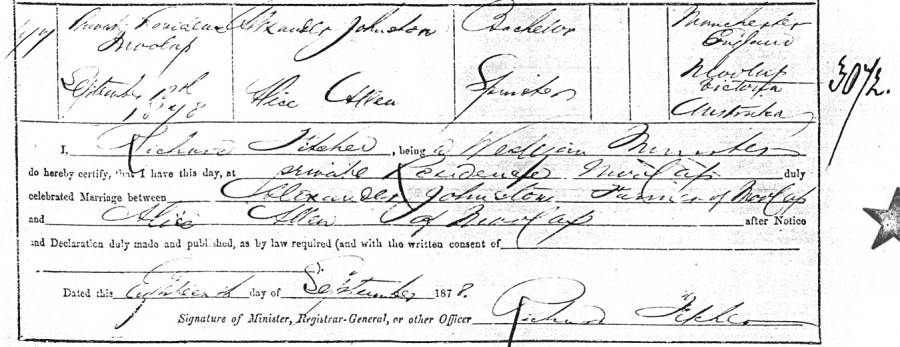 177 Private Residence Alexander Johnston Bachelor Manchester
Moolap England
September 18th Alice Allen Spinster Moolap
1878 Victoria
Australia
3072.
I, Richard Fitcher, being a Wesleyan Minister
do hereby certify, that I have this day, at private Residence Moolap duly
celebrated Marriage between Alexander Johnston, Farmer of Moolap
and Alice Allen of Moolap after Notice
and Declaration duly made and published, as by law required (and with the written consent of
).
Dated this Eighteenth day of September 1878.
Signature of Minister, Registrar-General, or other Officer Richard Fitcher